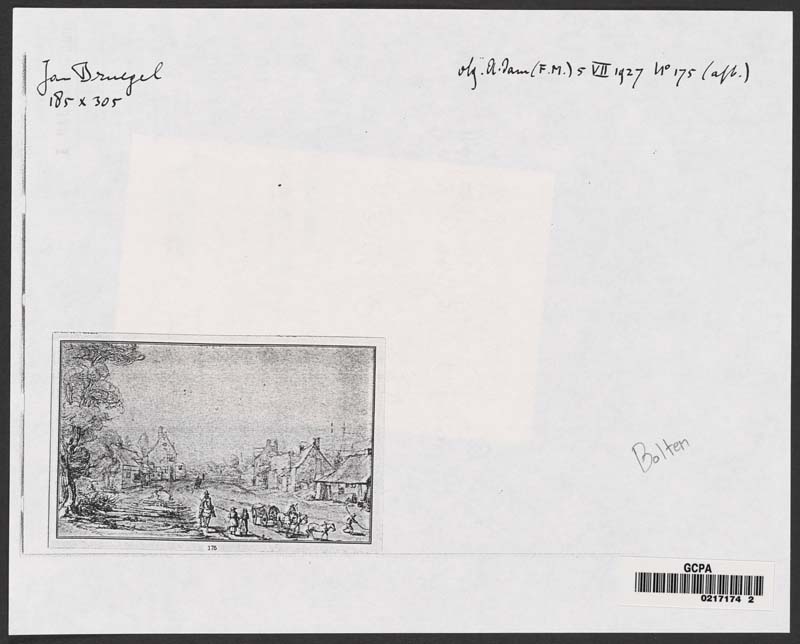 Jan Bruegel
185 x 305
vlg. A.dam (F.M.) 5 VII 1927 No 175 (afb.)
175
Bolten
GCPA
0217174 2